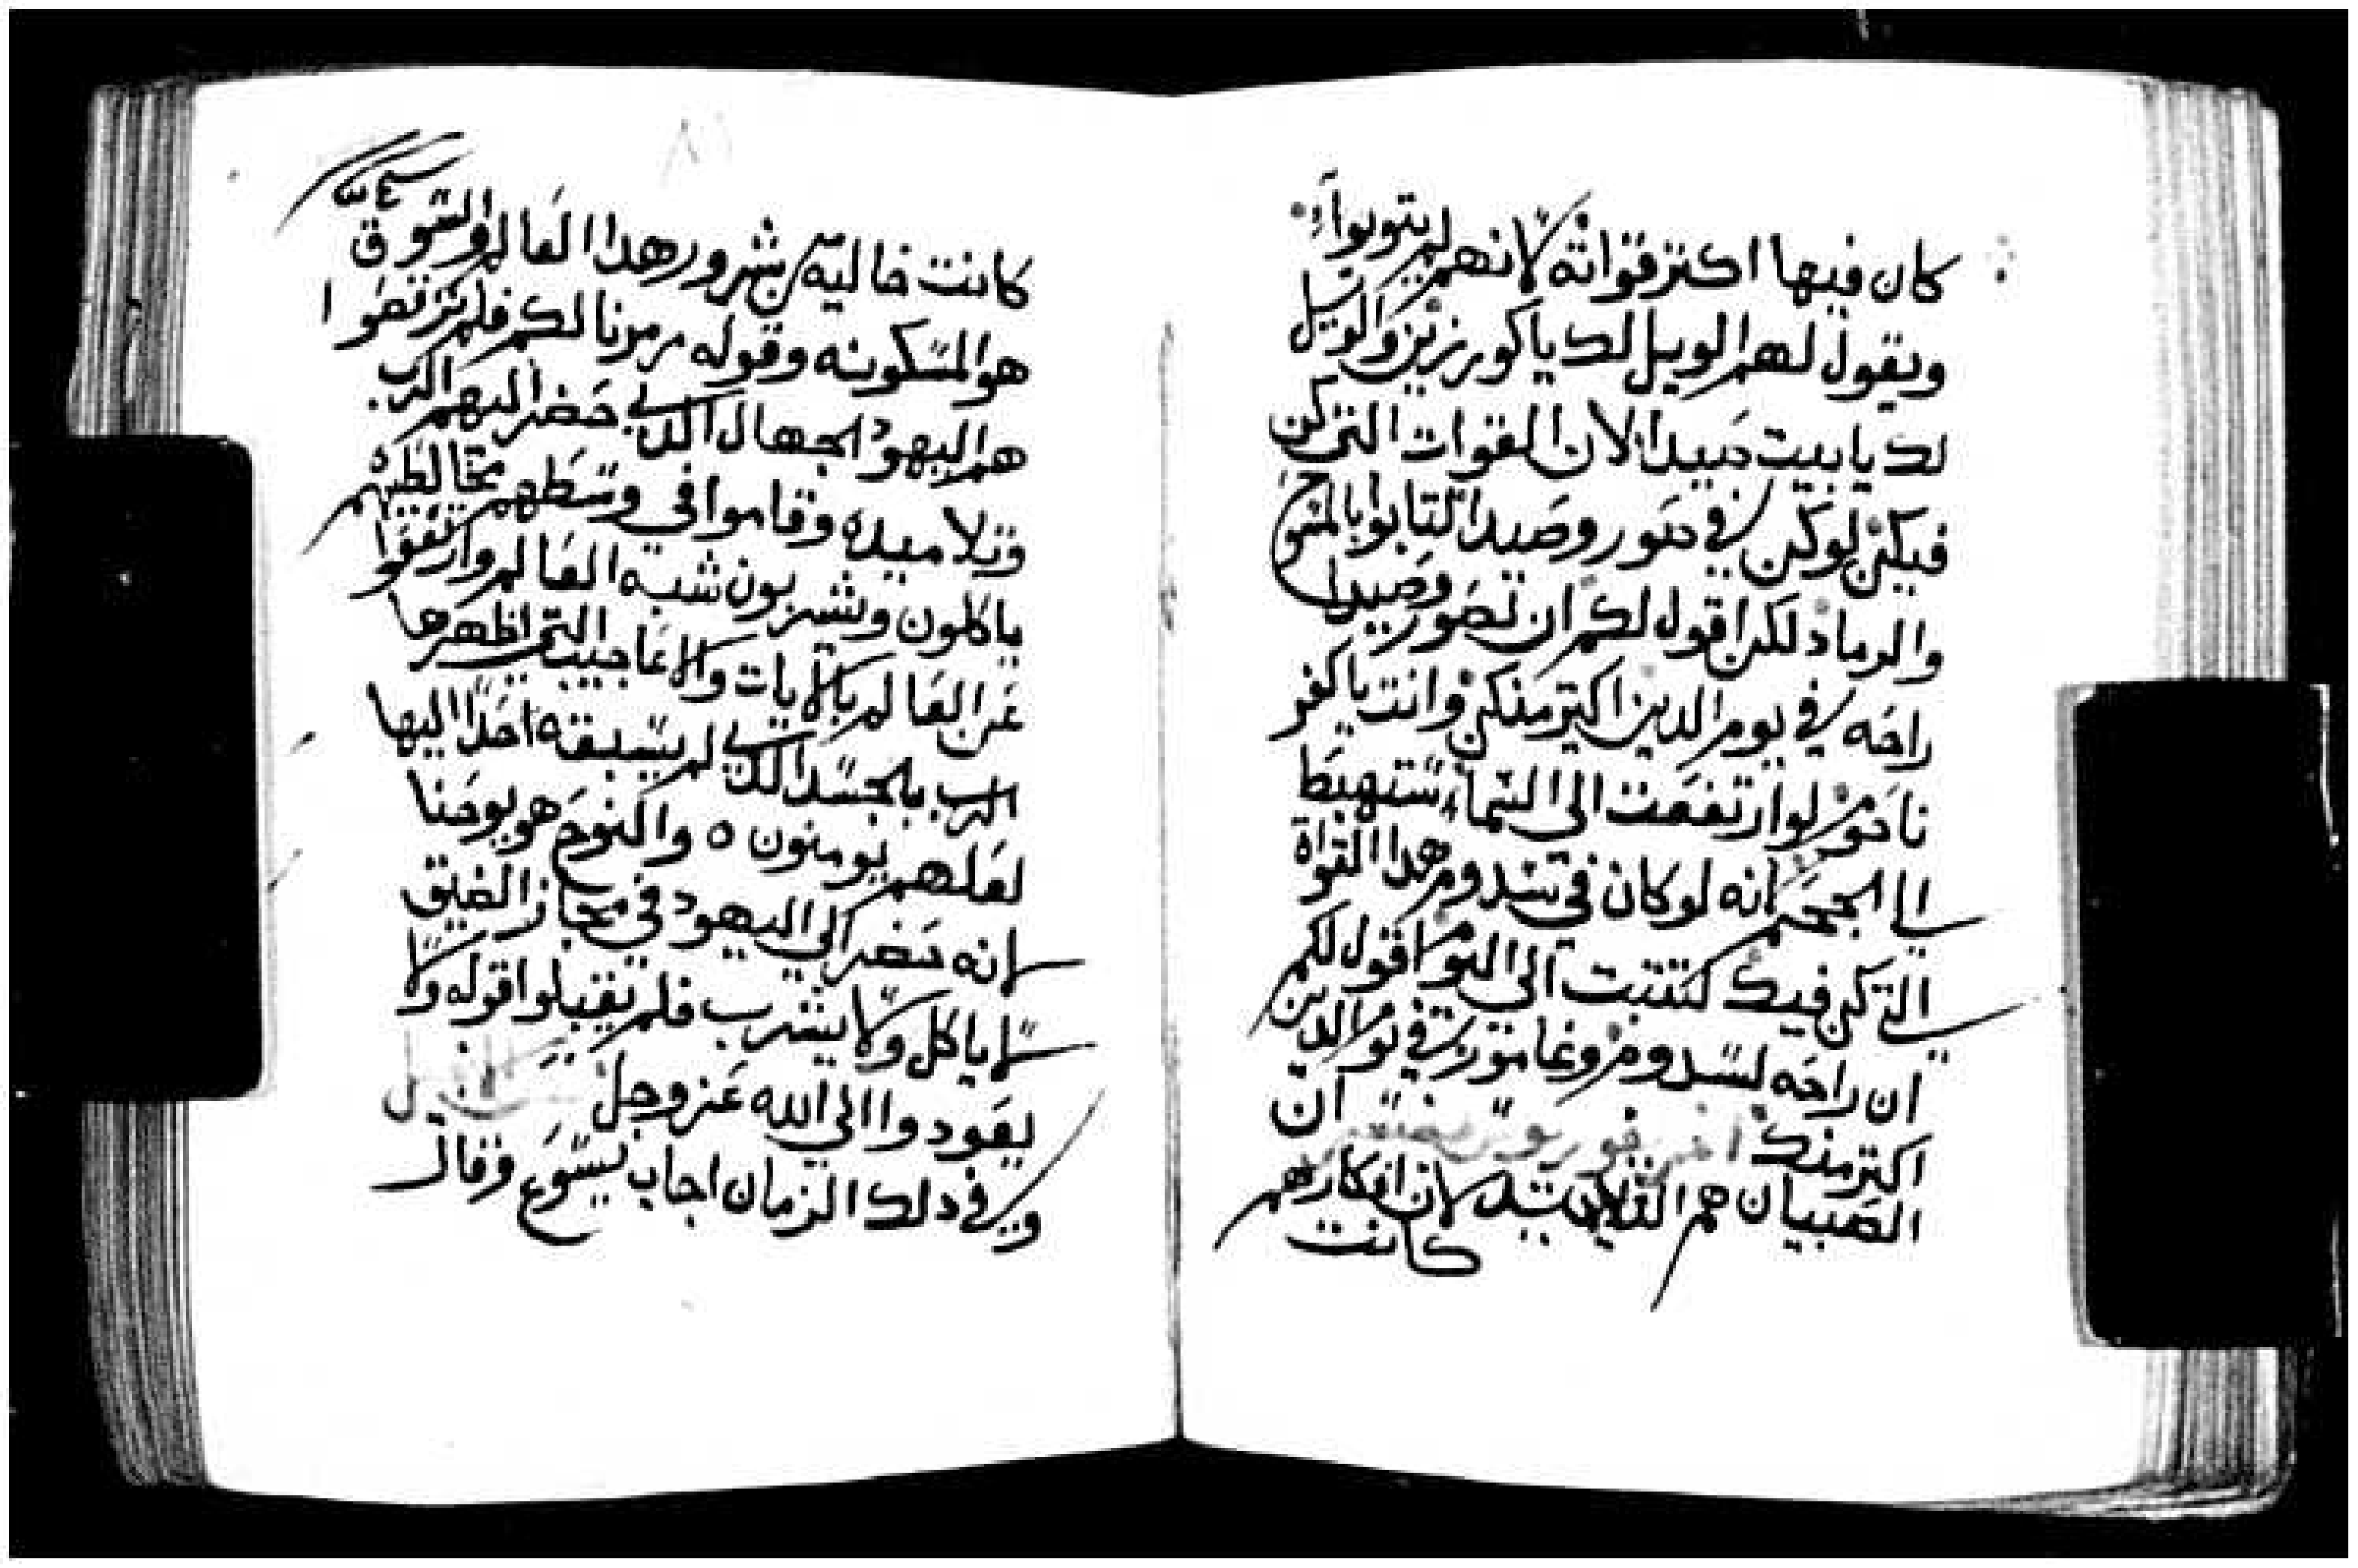 كان فيها اكتر قواته لانهم لم يتوبوا
ويقول لهم الويل لك يا كورزين والويل
لك يا بيت صيدا لان القوات التي كن
فيكن لو كن في صور وصيدا لتابوا بالمسوح
والرماد لكن اقول لكم ان لصور وصيدا
راحه في يوم الدين اكتر منكن وانت يا كفر
ناحوم لو ارتفعت الي السماء ستهبط
الي الجحيم انه لو كان في سدوم هذا القواة
التي كن فيك لتتبت الي اليوم اقول لكم
ان راحه لسدوم وغامورة في يوم الدين
اكتر منك ان
الصبيان هم التلاميد لان افكارهم
كانت
كانت خاليه من شرور هدا العالم والسوق
هو المسكونه وقوله زمرنا لكم فلم ترقصوا
هم اليهود الجهال الدي حضر اليهم الرب
وتلاميده وقاموا في وسطهم مخالطيهم
ياكلون ويشربون شبه العالم وارتفعوا
عن العالم بالايات والاعاجيب التي اظهرها
الرب بالجسد الدي لم يسبقه احدا اليها
لعلهم يومنون ٥ والنوح هو يوحنا
انه حضر الي اليهود في مجاز الضيق
لا ياكل ولا يشرب فلم يقبلوا قوله ولا
يعودوا الي الله عز وجل
وفي دلك الزمان اجاب يسوع وقال